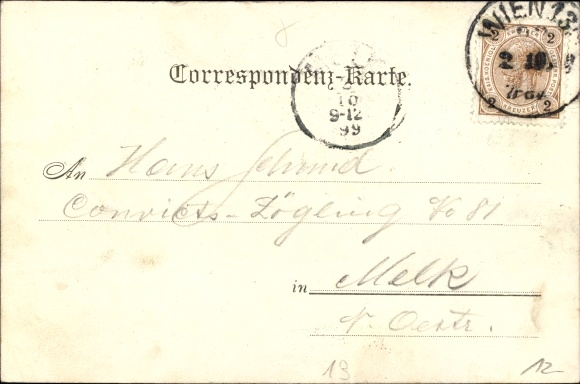 WIEN 13
2 10
2 2
2 2
KREUZER
Correspondenz-Karte.
10
9-12
99
An Hans Schmid.
Convicts-Zögling No 81
in Melk
N. Oestr.
13
12